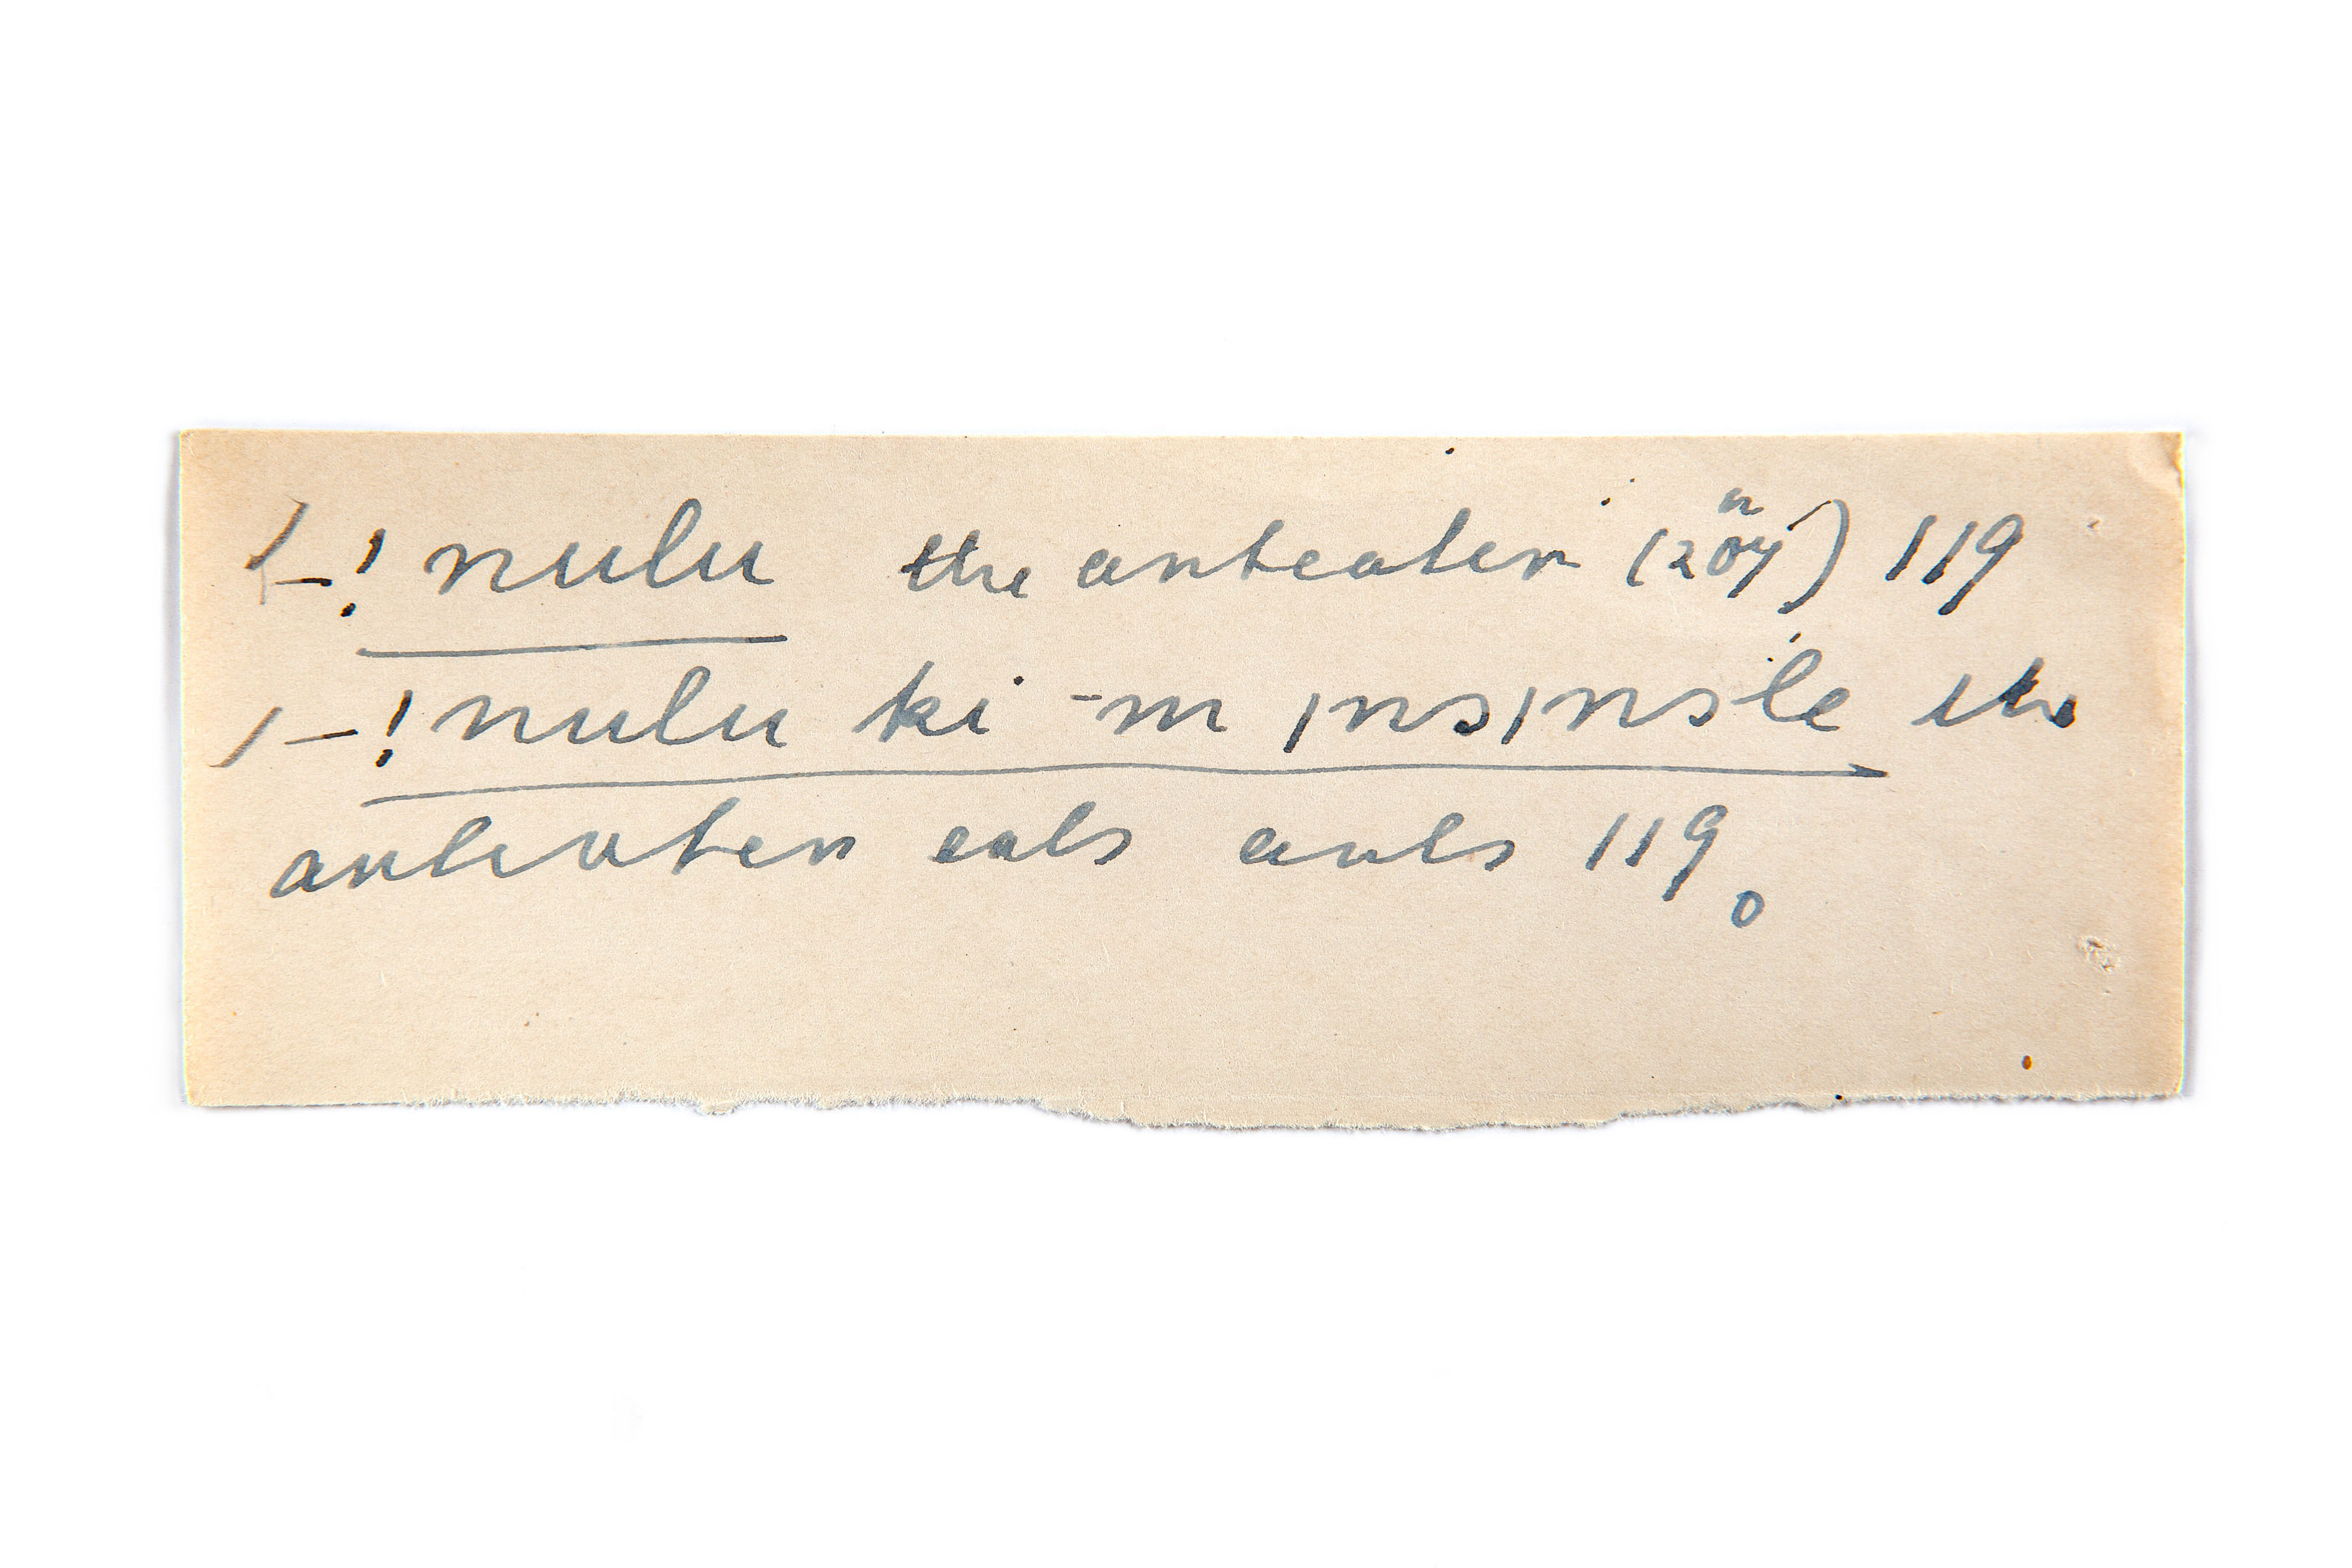 -! nulu the anteater (207) 119
-! nulu ki -m ınsınsle the
anteater eats ants 119